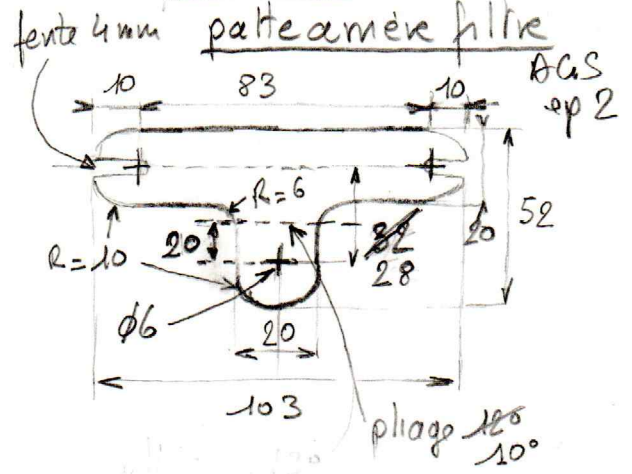 fente 4mm patte arrière filtre
AG5
ep 2
10 83 10
R=6
20
32
28
20
52
R=10
Ø6
20
103
pliage 12°
10°